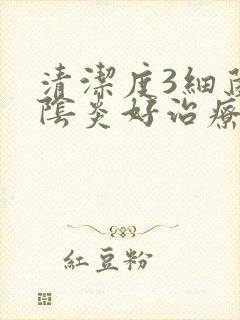 清潔度3細菌
陰炎好治療
紅豆粉